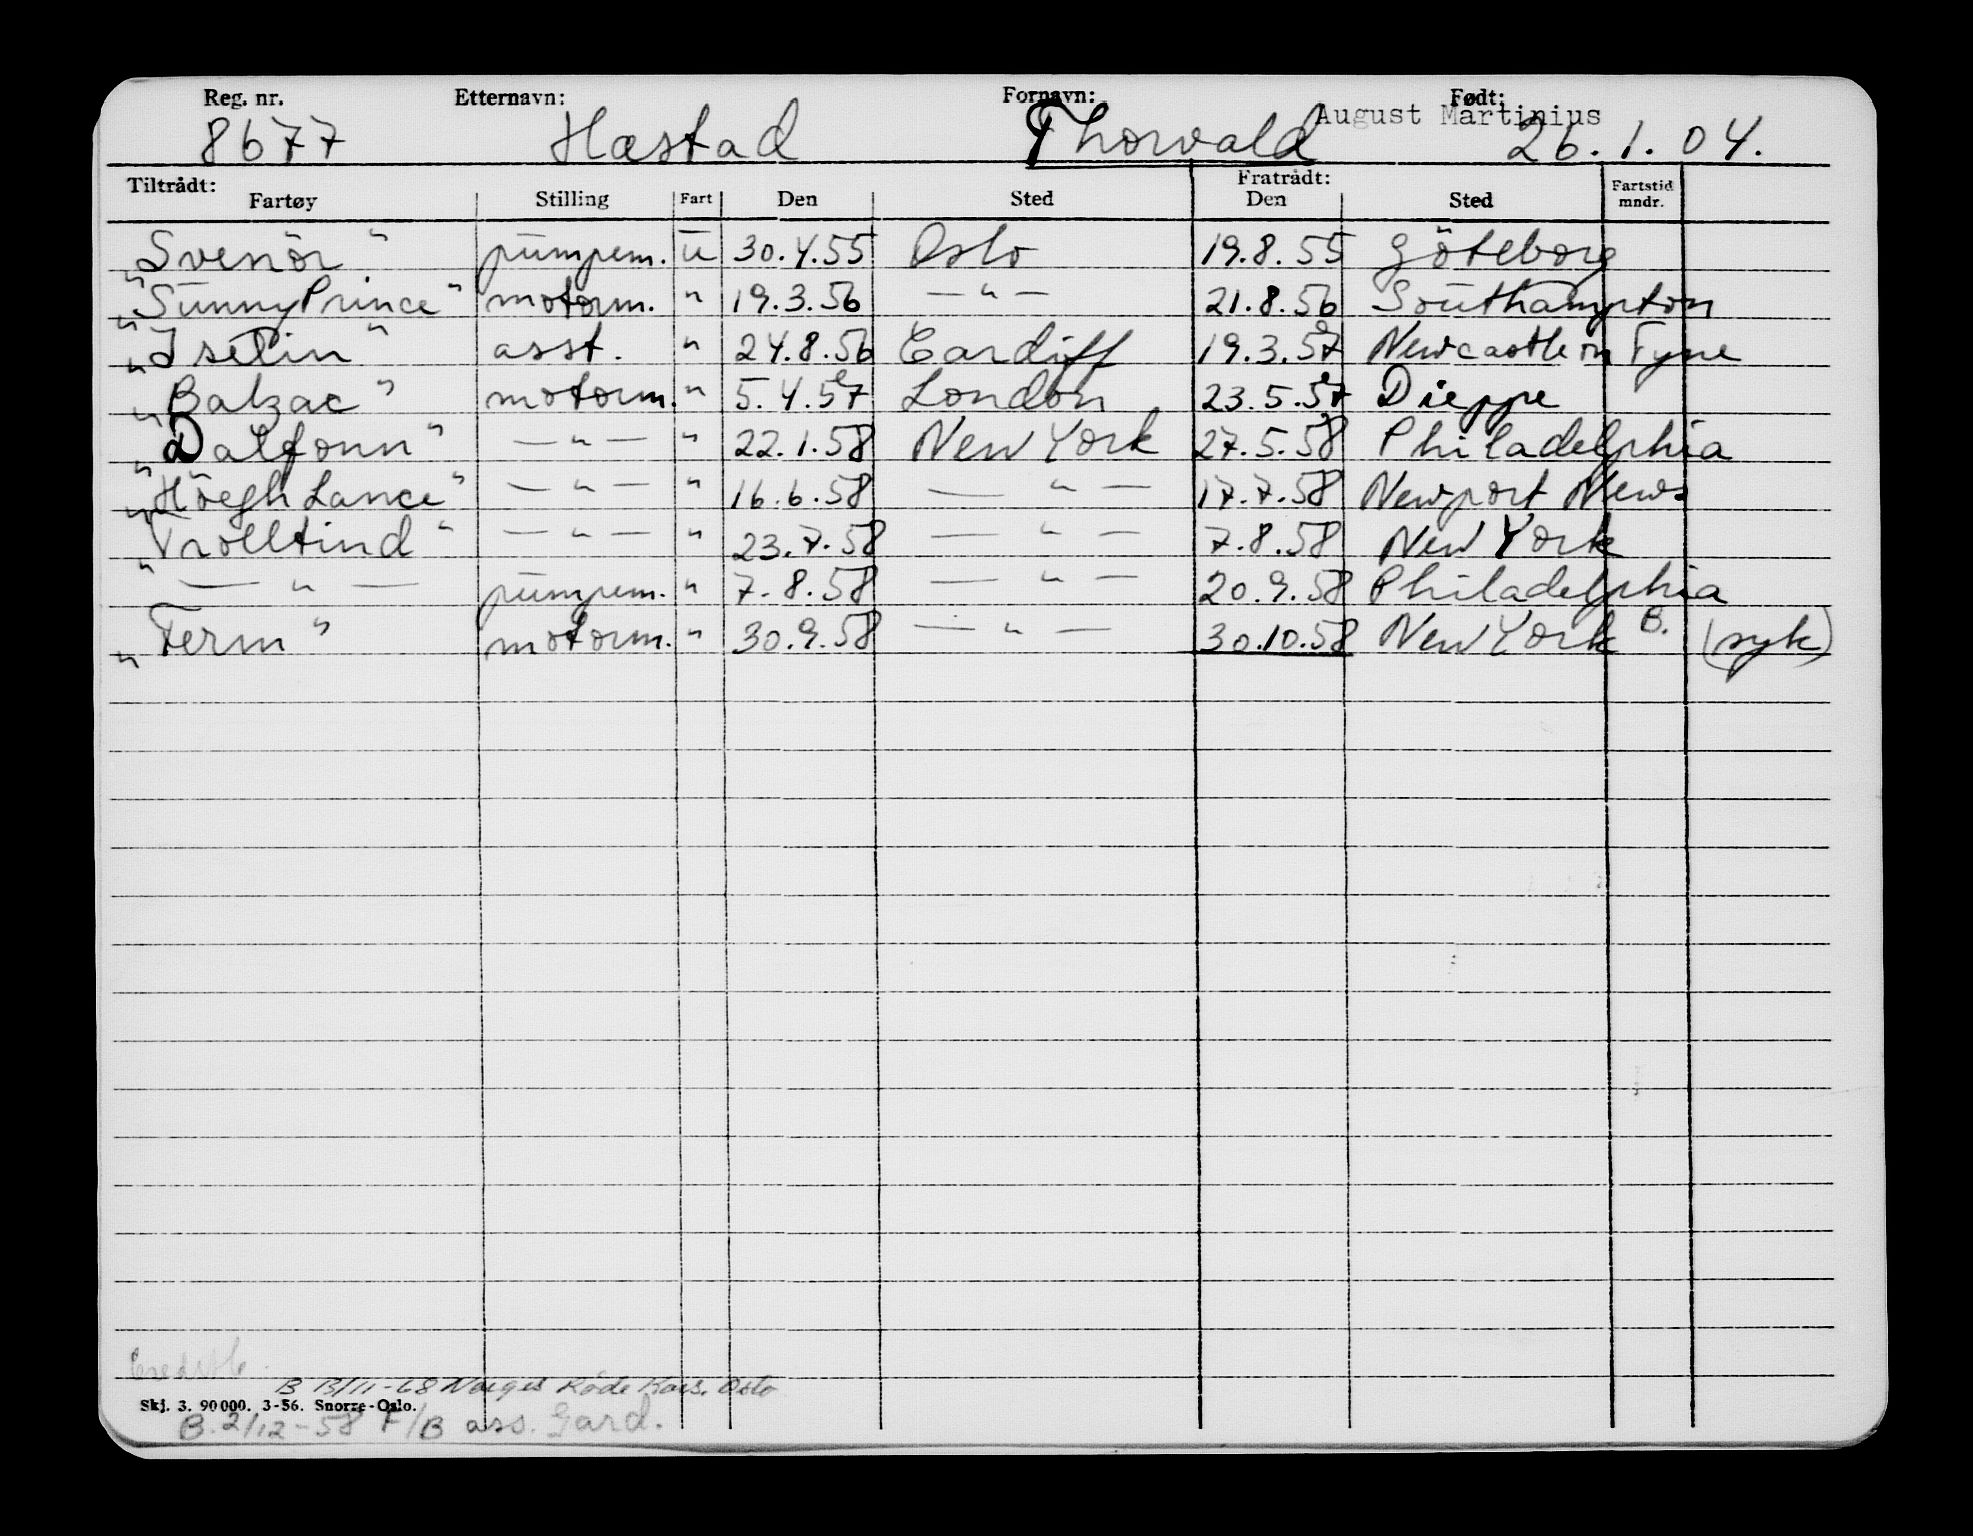 Reg. nr. Etternavn: Fornavn: Født:
8677 Hæstad Thorvald August Martinius 26.1.04.
Tiltrådt: Fratrådt:
Fartøy Stilling Fart Den Sted Den Sted Fartstid mndr.
"Svenör" pumpem. u 30.4.55 Oslo 19.8.55 Göteborg
"Sunny Prince" motorm. " 19.3.56 — " — 21.8.56 Southampton
"Iselin" asst. " 24.8.56 Cardiff 19.3.57 Newcastle on Tyne
"Balzac" motorm. " 5.4.57 London 23.5.57 Dieppe
"Dalfonn" — " — " 22.1.58 New York 27.5.58 Philadelphia
"Höegh Lance" — " — " 16.6.58 — " — 17.7.58 Newport News
"Trolltind" — " — " 23.7.58 — " — 7.8.58 New York
— " — pumpem. " 7.8.58 — " — 20.9.58 Philadelphia
"Ferm" motorm. " 30.9.58 — " — 30.10.58 New York B. (syk)
B 13/11-68 Norges Röde Kors. Oslo
Skj. 3. 90000. 3-56. Snorre-Oslo.
B. 2/12-58 F/B ass. Gard.